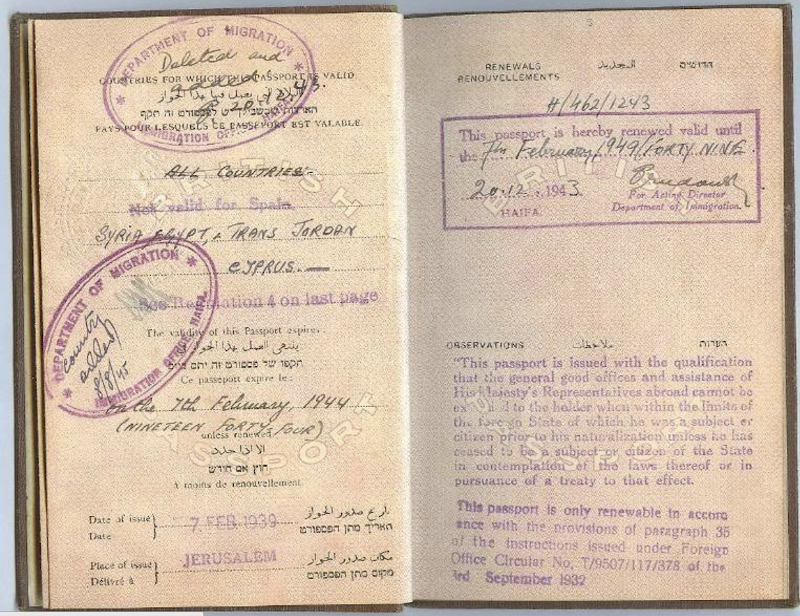 DEPARTMENT OF MIGRATION
Deleted and
COUNTRIES FOR WHICH THIS PASSPORT IS VALID
added
20.12.43.
הארצות שבשבילן פספורט זה תקף
PAYS POUR LESQUELS CE PASSEPORT EST VALABLE.
IMMIGRATION OFFICE
ALL COUNTRIES
Not valid for Spain.
SYRIA EGYPT, & TRANS JORDAN
CYPRUS.
See Regulation 4 on last page
DEPARTMENT OF MIGRATION
IMMIGRATION OFFICE HAIFA.
Country
added
8/8/45
The validity of this Passport expires:
ينتهي العمل بهذا الجواز
תקפו של פספורט זה יתם ביום
Ce passeport expire le:
on the 7th February, 1944
(NINETEEN FORTY FOUR)
unless renewed
الا اذا جدد
חוץ אם חודש
à moins de renouvellement
Date of issue
Date
7 FEB 1939
تاريخ صدور الجواز
תאריך מתן הפספורט
Place of issue
Délivré à
JERUSALEM
مكان صدور الجواز
מקום מתן הפספורט
BRITISH
PASSPORT
RENEWALS
RENOUVELLEMENTS
التجديد
חדושים
H/462/1243
This passport is hereby renewed valid until
the 7th February, 1949 / FORTY NINE
20.12.1943
HAIFA.
For Acting Director
Department of Immigration.
BRITISH
OBSERVATIONS
ملاحظات
הערות
"This passport is issued with the qualification
that the general good offices and assistance of
His Majesty's Representatives abroad cannot be
extended to the holder when within the limits of
the foreign State of which he was a subject or
citizen prior to his naturalization unless he has
ceased to be a subject or citizen of the State
in contemplation of the laws thereof or in
pursuance of a treaty to that effect.
This passport is only renewable in accord
ance with the provisions of paragraph 35
of the instructions issued under Foreign
Office Circular No. T/9507/117/378 of the
3rd September 1932
PASSPORT